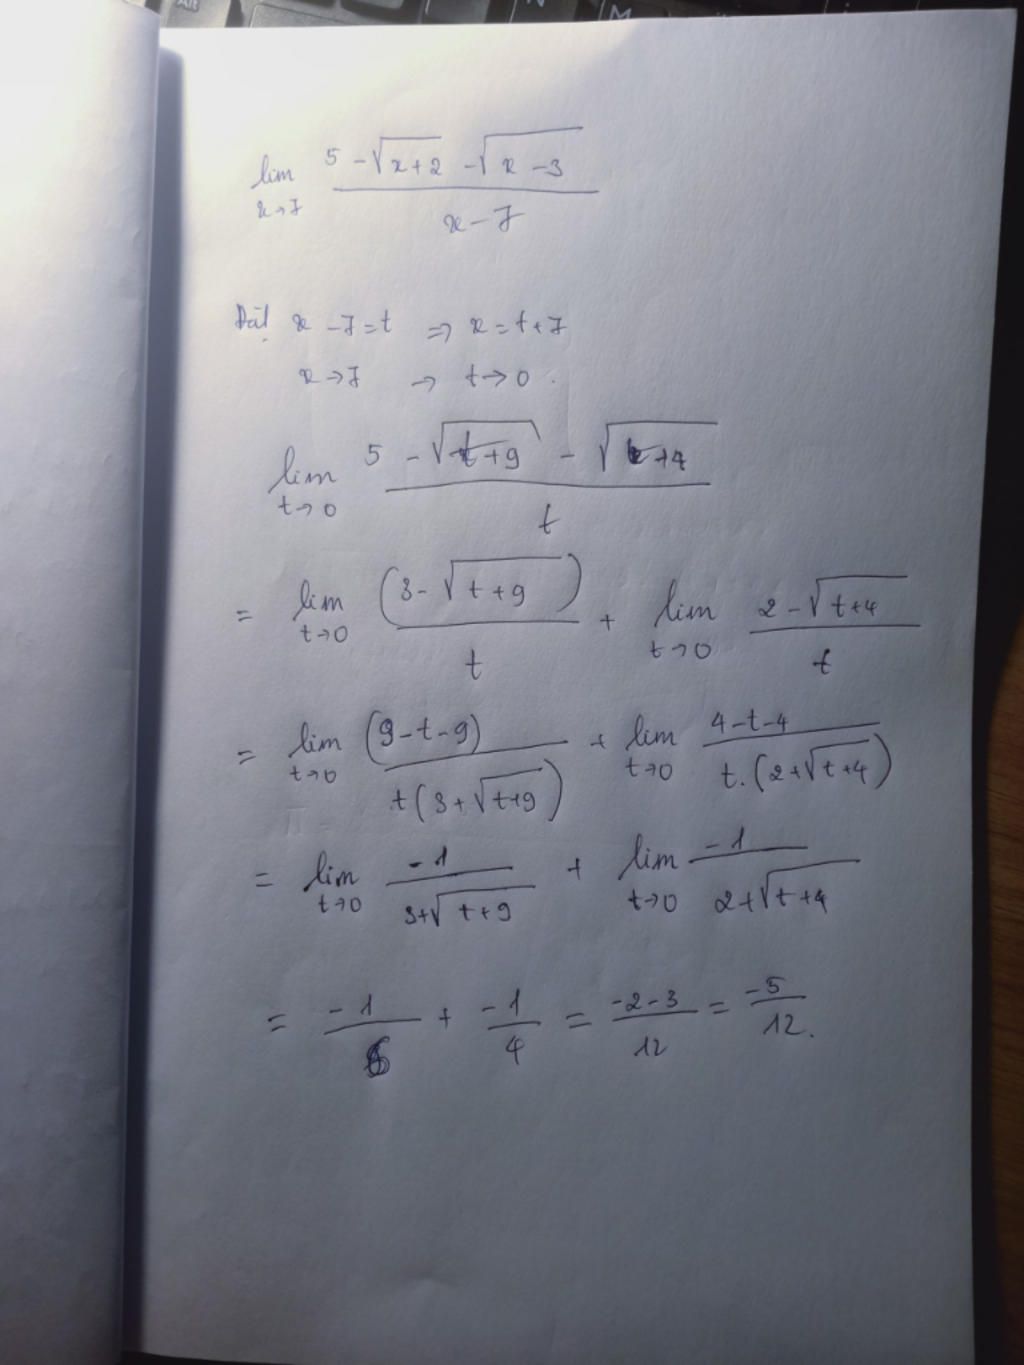 lim x→7 (5 - √(x+2) - √(x-3)) / (x-7)
Đặt x - 7 = t ⇒ x = t + 7
x → 7 → t → 0.
lim t→0 (5 - √(t+9) - √(t+4)) / t
= lim t→0 (3 - √(t+9)) / t + lim t→0 (2 - √(t+4)) / t
= lim t→0 (9-t-9) / (t(3+√(t+9))) + lim t→0 (4-t-4) / (t.(2+√(t+4)))
= lim t→0 -1 / (3+√(t+9)) + lim t→0 -1 / (2+√(t+4))
= -1/6 + -1/4 = (-2-3)/12 = -5/12.